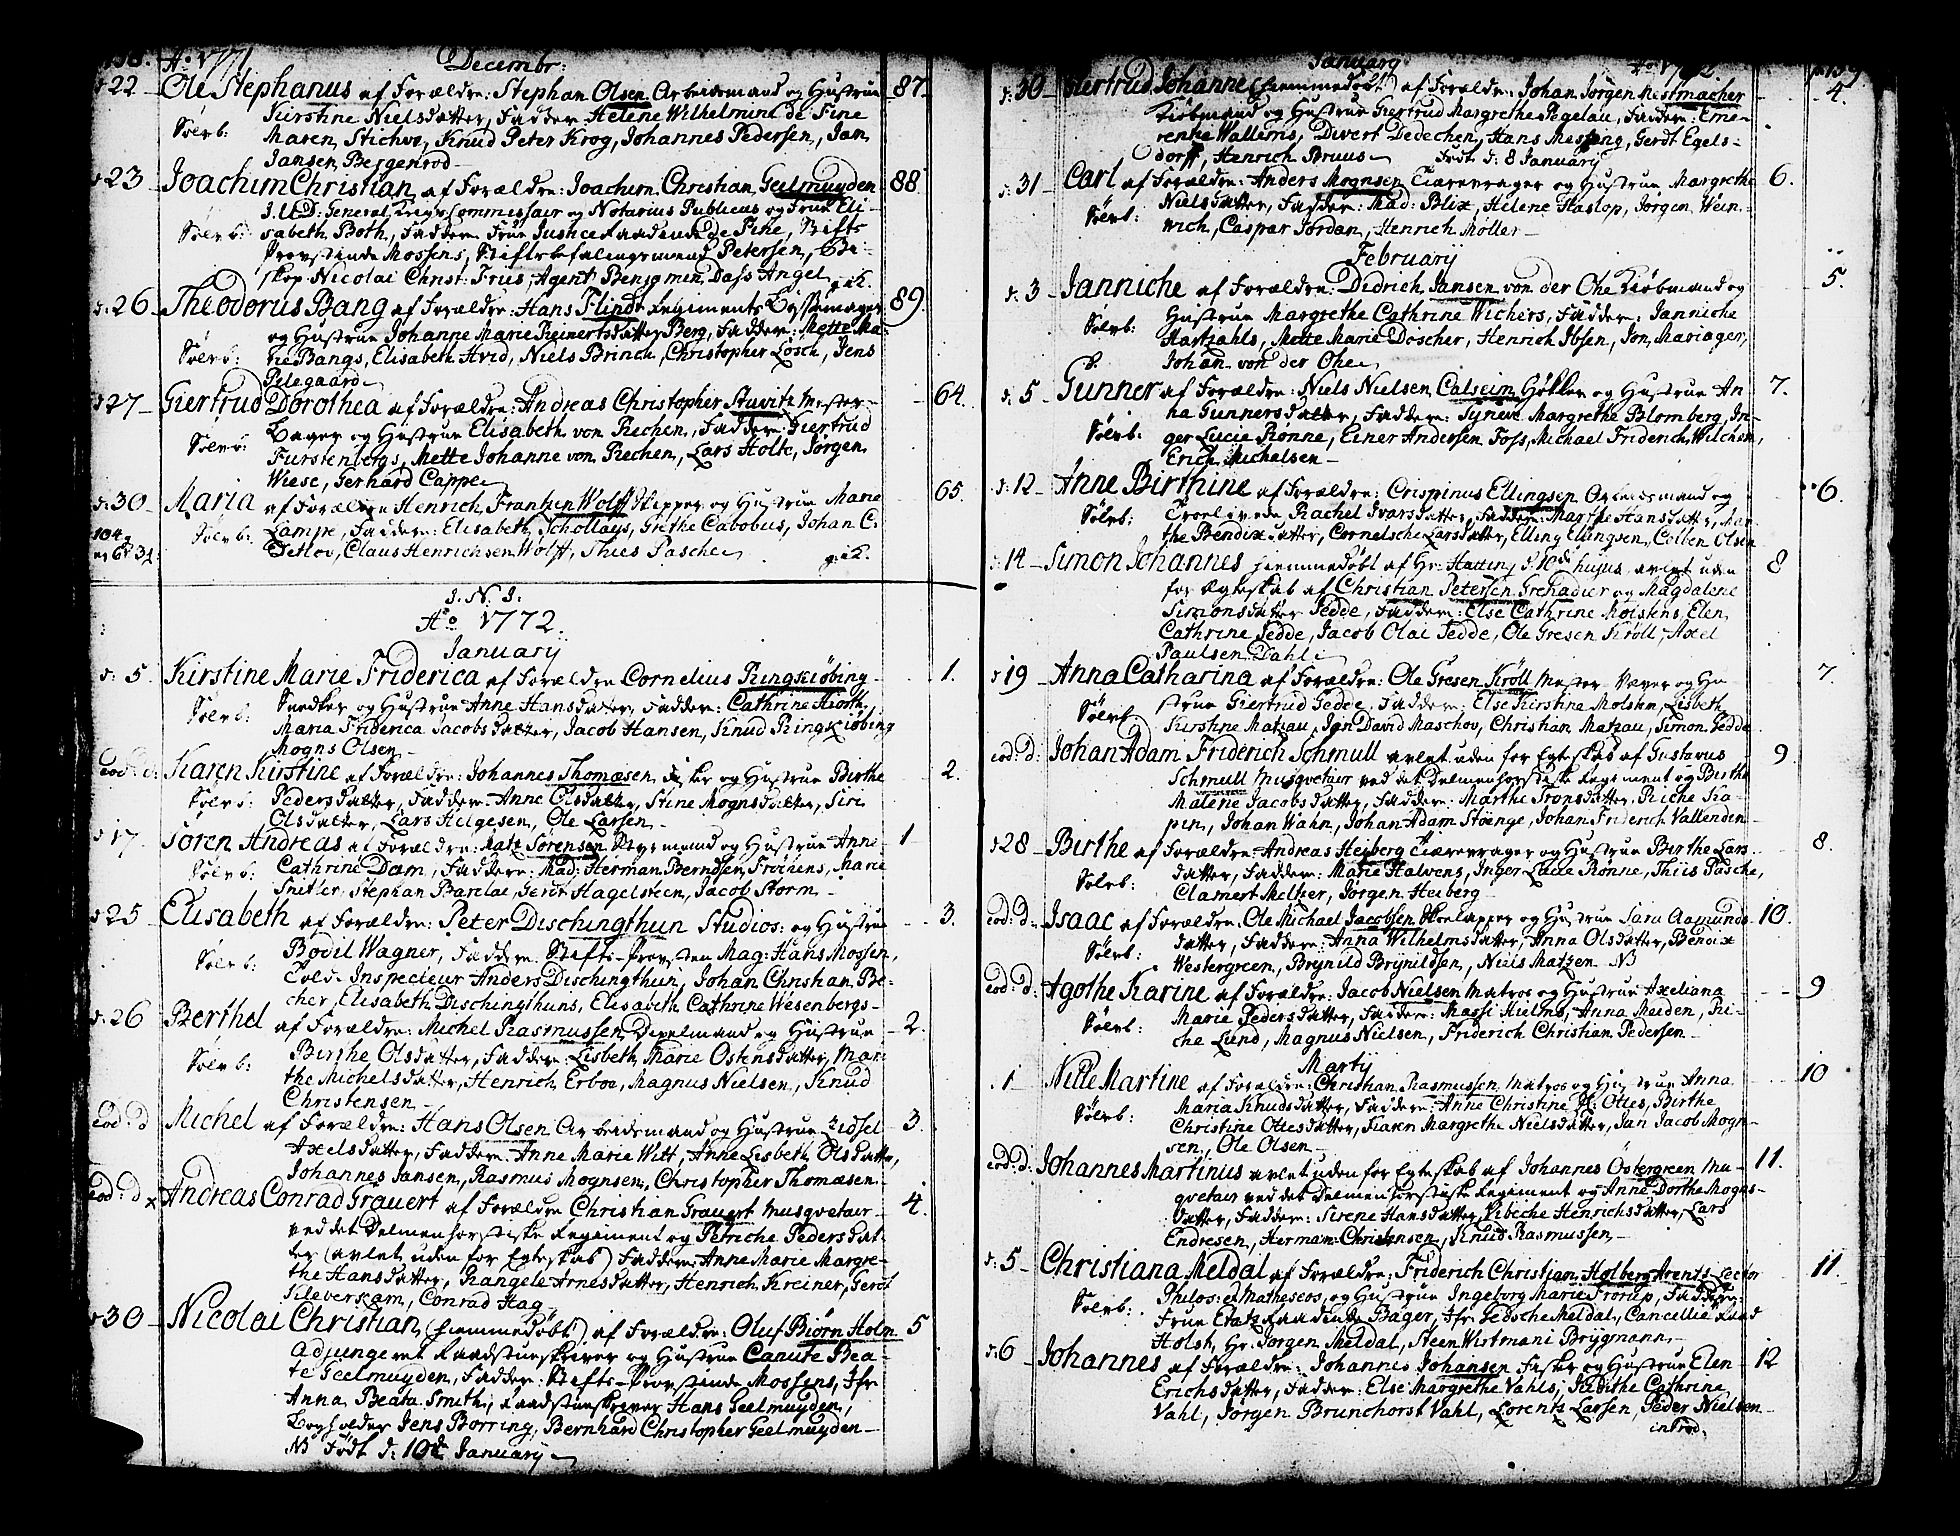 138. Ao 1771 Decembr:
d: 22 Ole Stephanus af Forældre: Stephan Olsen Arbeidsmand og Hustrue 87.
Sølvb: Kirstine NielsDatter, Faddere Helene Wilhelmine de Fine
Maren Stichvo, Knud Peter Krog, Johannes Pedersen, Jan
Jansen Beggenrod
d: 23 Joachim Christian af Forældre: Joachim Christian Geelmuyden 88
J.U.D: General Krigs Commissair og Notarius Publicus og Frue Eli-
Sølvb: sabeth Both, Faddere Frue Justice Raadinde de Fine, Stifts
Provstinde Mossens, Stiftsbefalingsmend Petersen, Bi-
skop Nicolai Christ: Friis, Agent Benjamin Dass Angel
d: 26 Theodorus Bang af Forældre: Hans Flindt Regiments Bøssemager 89
og Hustrue Johanne Marie ReinertsDatter Berg, Faddere: Mette Ma-
Sølvb: rie Bangs, Elisabeth Hvid, Niels Brinch, Christopher Løsch, Jens
Pilegaard
d: 27 Giertrud Dorothea af Forældre: Andreas Christopher Stuvitz Mester 64.
Sølvb: Bager og Hustrue Elisabeth von Rechen, Faddere: Giertrud
Furstenbergs, Mette Johanne von Rechen, Lars Holte, Jørgen
Wiese, Gerhard Cappe
d: 30 Maria af Forældre Henrich Frantzen Wolff Skipper og Hustrue Marie 65.
Sølvb: Lampe, Faddere: Elisabeth Schollays, Grethe Cabobus, Johan C:
Detlov, Claus Henrichsen Wolff, Thies Pasche
J. N. J.
Ao 1772.
January
d: 5. Kirstine Marie Friderica af Forældre Cornelius Ringkiøbing 1.
Sølvb: Snedker og Hustrue Anne HansDatter, Faddere: Cathrine Hiorth,
Maria Friderica JacobsDatter, Jacob Hansen, Knud Ringkiøbing
Mogns Olsen
eod: d: Karen Kirstine af Forældre: Johannes Thomæsen og Hustrue Birthe 2.
Sølvb: PedersDatter, Faddere: Anne OlsDatter, Stine MognsDatter, Siri
OlsDatter, Lars Helgesen, Ole Larsen
d: 17. Søren Andreas af Forældre: Matz Sørensen Styrmand og Hustrue Anne 1
Sølvb: Cathrine Dam, Faddere: Mad: Herman Berndsen Frøchens, Marie
Snitler, Stephan Barclae, Gerdt Hagelsteen, Jacob Storm
d: 25 Elisabeth af Forældre: Peter Dischingthun Studios: og Hustrue 3.
Sølvb: Bodil Wagner, Faddere: Stifts-Provsten Mag: Hans Mossen,
Told-Inspecteur Anders Dischingthun, Johan Christian Be-
cher, Elisabeth Dischingthuns, Elisabeth Cathrine Wesenbergs
d: 26 Berthel af Forældre: Michel Rasmussen og Hustrue 2.
Sølvb: Birthe OlsDatter, Faddere: Lisbeth Marie OstensDatter, Mar-
the MichelsDatter, Henrich Erboe, Magnus Nielsen, Knud
Christensen
eod: d Michel af Forældre: Hans Olsen Arbeidsmand og Hustrue Zidsel 3.
AxelsDatter, Faddere: Anne Marie Witt, Anne Lisbeth OlsDatter,
Johannes Jansen, Rasmus Mognsen, Christopher Thomæsen
eod: d x Andreas Conrad Grauert af Forældre Christian Grauert Musqvetair 4.
ved det Delmenhorstiske Regiment og Petriche PedersDat-
ter (avlet uden for Egteskab) Faddere: Anne Marie Margre-
the HansDatter, Rangele ArnesDatter, Henrich Kreiner, Gerdt
Tileverkam, Conrad Hag
d: 30 Nicolai Christian (hiemmedøbt) af Forældre: Oluf Biørn Holm 5
Adjungeret Raadstueskriver og Hustrue Canute Bea-
te Geelmuyden, Faddere: Stifts-Provstinde Mossens, Jfr
Anna Beata Smith, Raadstueskriver Hans Geelmuyden,
Bogholder Jens Borring, Bernhard Christopher Geelmuyden
NB Født d: 10de January
January Ao 1772 p. 139
d: 30 Giertrud Johanne (hiemmedøbt) af Forældre: Johan Jørgen Mestmacher 4.
Kiøbmand og Hustrue Giertrud Margrethe Pegelau, Faddere: Eme-
rentie Wallems, Divert Dedechen, Hans Mesting, Gerdt Egels-
dorff, Henrich Bruus Født d: 8 January
d: 31 Carl af Forældre: Anders Mognsen Tiærevrager og Hustrue Margrethe 6.
Sølvb: NielsDatter, Faddere: Mad: Blix, Helene Haslop, Jørgen Wein-
wich, Caspar Jordan, Henrich Møller
February
d: 3 Janniche af Forældre: Didrich Jansen von der Ohe Kiøbmand og 5.
Sølvb: Hustrue Margrethe Cathrine Wichers, Faddere: Janniche
Hartzahls, Mette Marie Døscher, Henrich Ibsen, Jon Mariager,
Johan von der Ohe
d: 5 Gunner af Forældre: Niels Nielsen Calseim Høkker og Hustrue An- 7.
Sølvb: na GunnersDatter, Faddere: Syneve Margrethe Blomberg, In-
ger Lucie Rønne, Einer Andersen Fojs, Michael Friderich Wilchen,
Erich Michelsen
d: 12 Anne Birthine af Forældre: Crispinus Ellingsen Arbeidsmand og 6.
Sølvb: Troelovede Rachel IvarsDatter, Faddere: Marthe HansDatter, Mar-
the BendixDatter, Cornelsche LarsDatter, Elling Ellingsen, Colben Olsen
d: 14 Simon Johannes hiemmedøbt af Hr: Hatting d: 10de hujus avlet uden 8
for Egteskab af Christian Petersen Grenadier og Magdalene
SimonsDatter Gedde, Faddere: Else Cathrine Moistens, Elen
Cathrine Gedde, Jacob Olai Gedde, Ole Gresen Krøll, Axel
Paulsen Dahl
d: 19 Anna Catharina af Forældre: Ole Gresen Krøll Mester Væver og Hu- 7.
Sølvb: strue Giertrud Gedde, Faddere: Else Kirstine Molsten, Lisbeth
Kirstine Matzau, Jan David Maschov, Christian Matzau, Simon Gedde
eod: d: Johan Adam Friderich Schmull avlet uden for Egteskab af Gustavus 9.
Schmull Musqvetair ved det Delmenhorstiske Regiment og Birthe
Malene JacobsDatter, Faddere: Marthe TronsDatter, Riche Ka-
pen, Johan Wahn, Johan Adam Stænge, Johan Friderich Vallendin
d: 28 Birthe af Forældre: Andreas Heiberg Tiærevrager og Hustrue Birthe Lars- 8.
Sølvb: Datter, Faddere: Marie Halvens, Inger Lucie Rønne, Thiis Pasche,
Clamert Meltzer, Jørgen Heiberg
eod: d: Isaac af Forældre: Ole Michael Jacobsen Skoelapper og Hustrue Sara Aamunds- 10.
Sølvb: Datter, Faddere: Anna WilhelmsDatter, Anna OlsDatter, Bendix
Westergreen, Brynild Brynildsen, Niels Matzen NB
eod: d: Agothe Karine af Forældre: Jacob Nielsen Matros og Hustrue Axeliana 9
Sølvb: Marie PedersDatter, Faddere: Massi Hielms, Anna Meiden, Ri-
che Lund, Magnus Nielsen, Friderich Christian Pedersen
Martij
1 Nille Martine af Forældre: Christian Rasmussen Matros og Hustrue Anna 10
Sølvb: Maria KnudsDatter, Faddere: Anne Christine Otties, Birthe
Christine OttesDatter, Karen Margrethe NielsDatter, Jan Jacob Mogn-
sen, Ole Olsen
eod: d: Johannes Martinus avlet uden for Egteskab af Johannes Östergreen Mu- 11.
qvetair ved det Delmenhorstiske Regiment og Anne Dorthe Mogns-
Datter, Faddere: Sirene HansDatter, Vibeche HenrichsDatter, Lars
Endresen, Herman Christensen, Knud Rasmussen
d: 5 Christiana Meldal af Forældre: Friderich Christian Holberg Arents Lector 11.
Sølvb: Philos: et Matheseos, og Hustrue Ingeborg Marie Frorup, Faddere:
Frue Etatz Raadinde Bager, Jfr Gedsche Meldal, Cancellie Raad
Holst, Hr: Jørgen Meldal, Steen Wirtmani Brygmann
d: 6 Johannes af Forældre: Johannes Johansen Fisker og Hustrue Elen 12
ErichsDatter, Faddere: Else Margrethe Vahls, Judithe Cathrine
Vahl, Jørgen Brunchorst Vahl, Lorentz Larsen, Peder Nielsen
introd.